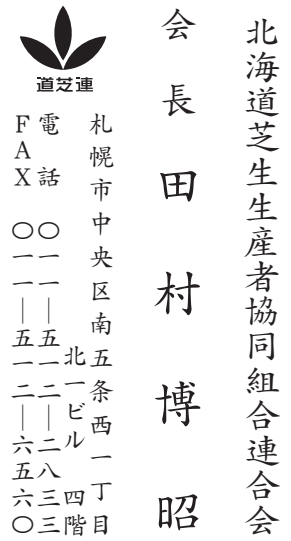 北海道芝生生産者協同組合連合会
会長 田村博昭
札幌市中央区南五条西一丁目
北一ビル 四階
電話 〇一一―五一二―二八三三
FAX 〇一一―五一二―六五六〇
道芝連